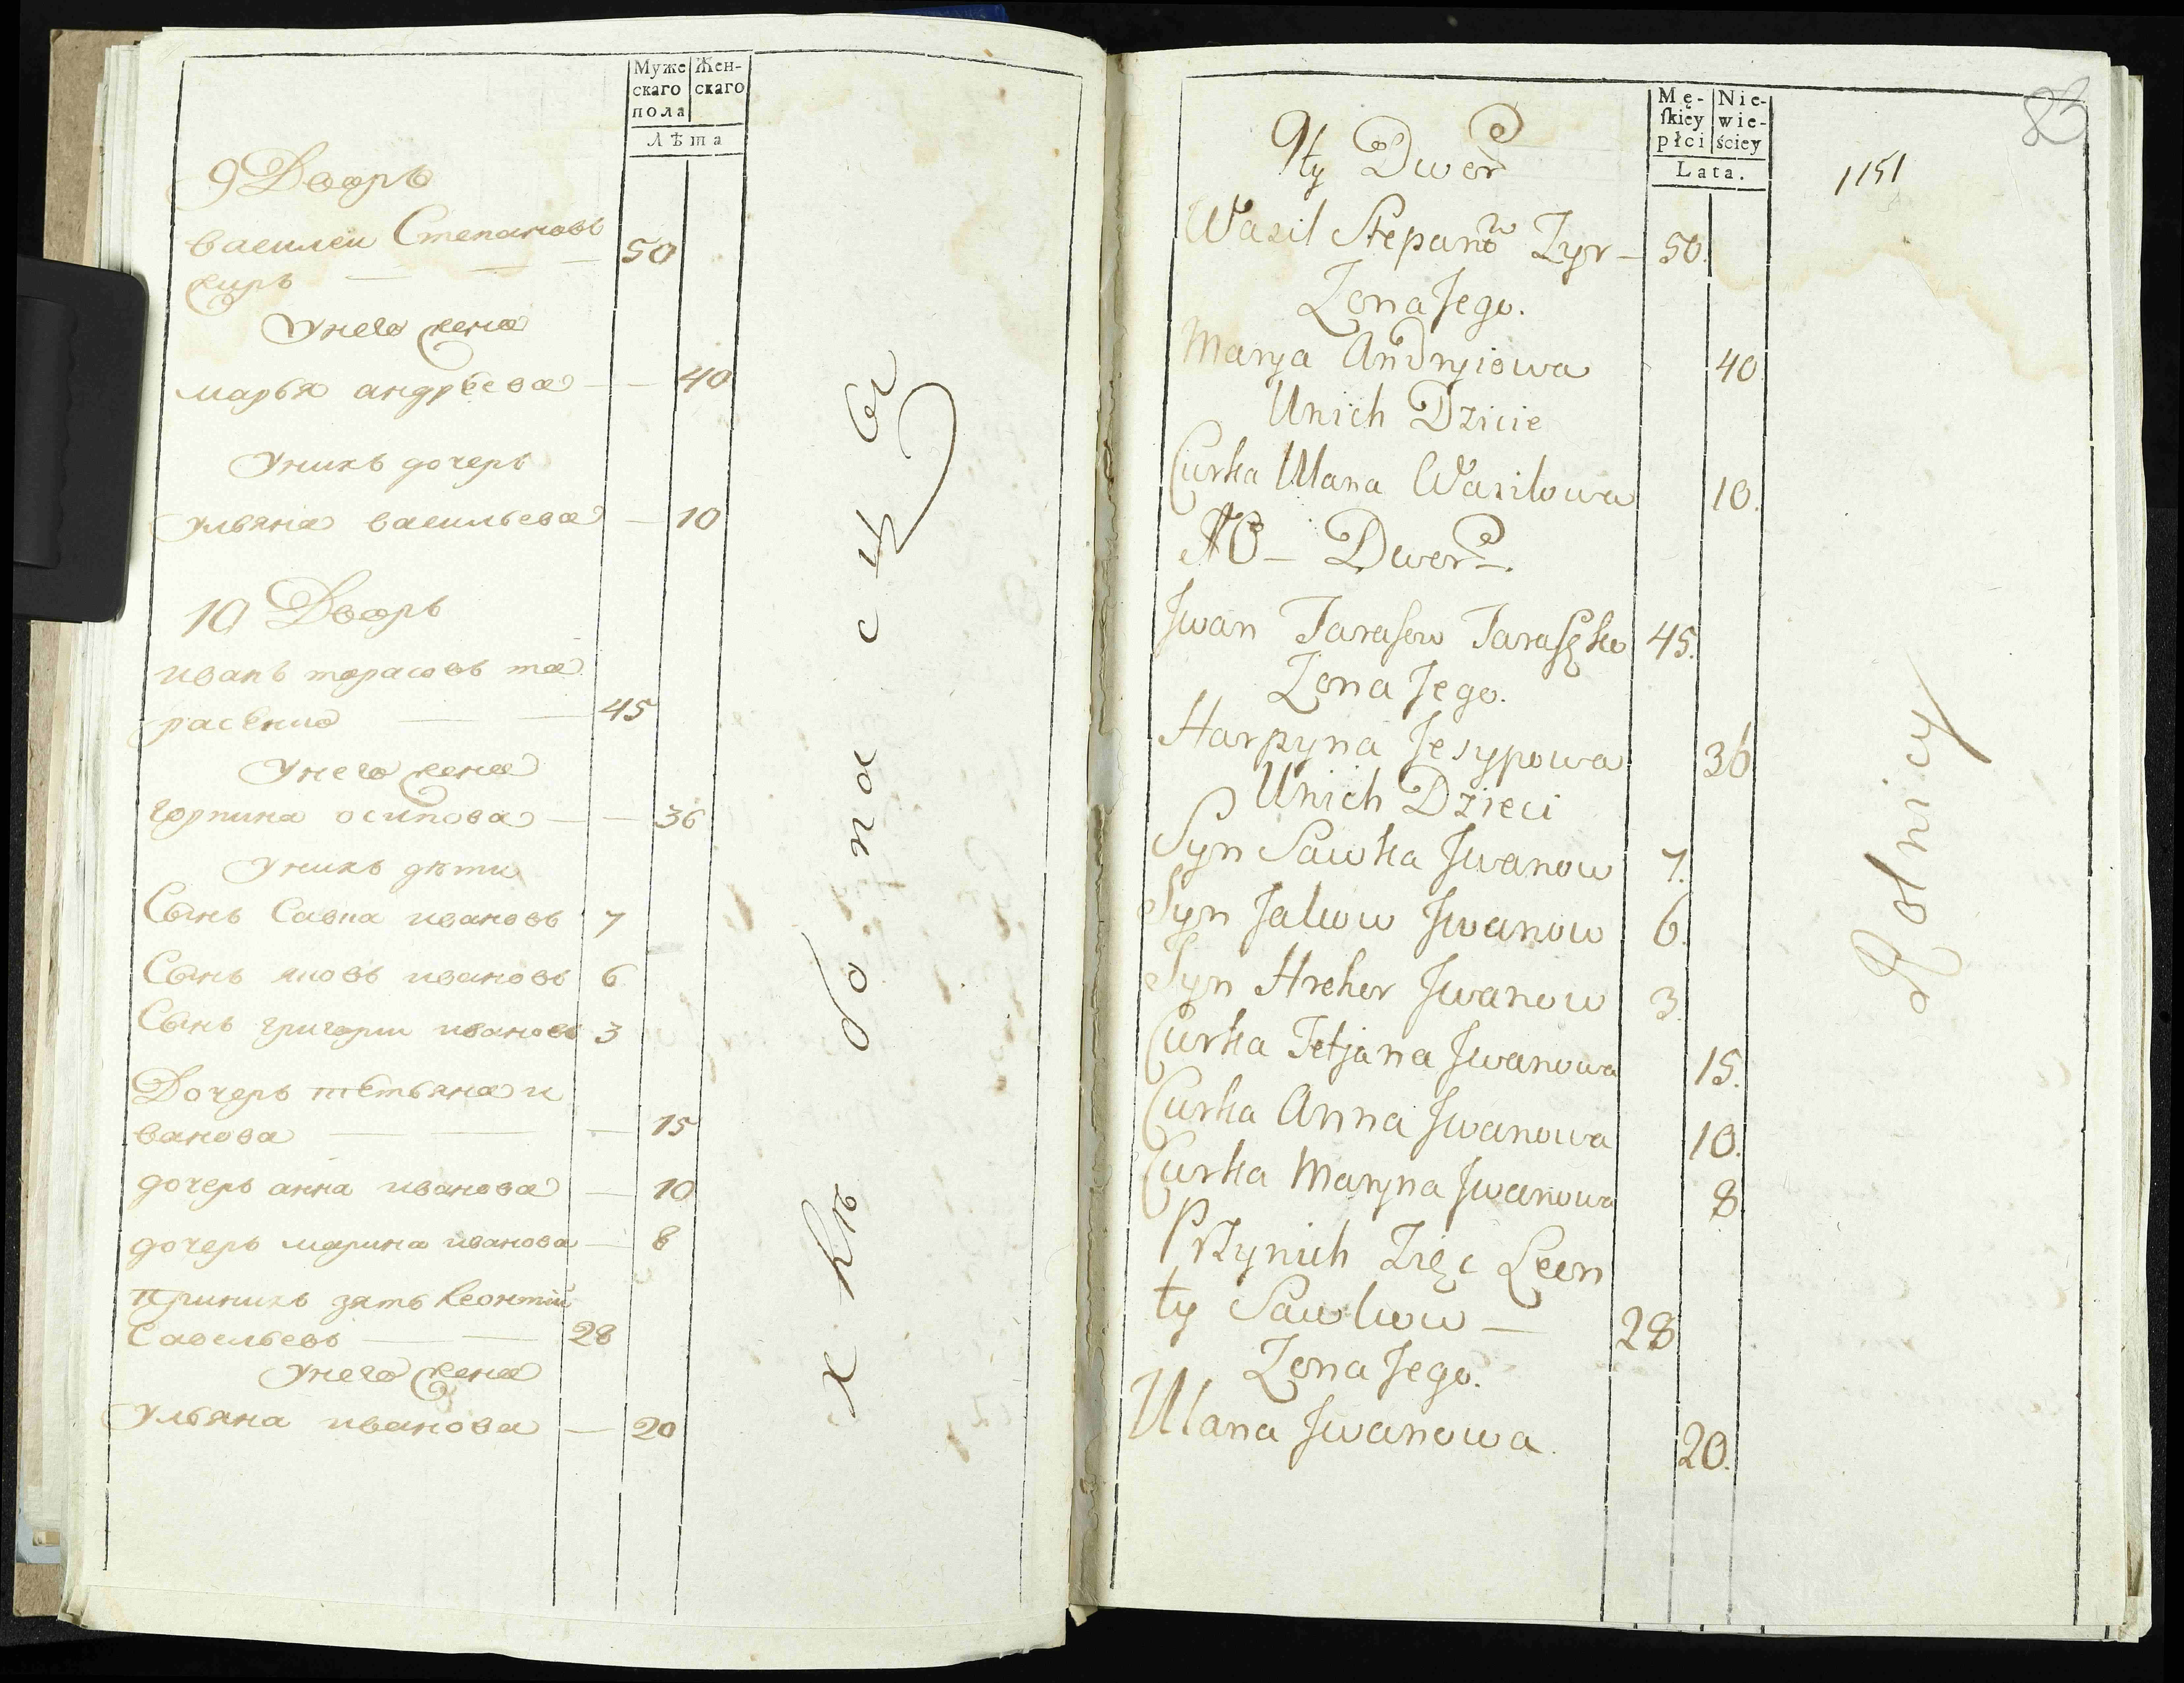 Муже Жен-
скаго скаго
пола
Лѣта
9 Дворъ
василеи Степановъ
жиръ — — — 50
Унего жена
марья андрѣева — — 40
Унихъ дочерь
ульяна васильева — 10
10 Дворъ
иванъ тарасовъ та
расѣнко — — 45
Унего жена
горпина осипова — — 36
Унихъ дѣти
Сынъ Савка ивановъ 7
Сынъ яковъ ивановъ 6
Сынъ григории ивановъ 3
Дочерь тетьяна и
ванова — — — 15
дочерь анна иванова — 10
дочерь марина иванова — 8
принихъ зять леонтии
Савельевъ — — 28
Унего жена
Ульяна иванова — 20
хлѣбопасцы
Mę- Nie-
skiey wie-
płci ściey
Lata.
83
1151
9ty Dwor
Wasil Stepanow Zyr — 50.
Zona Jego.
Marya Andryiowa 40
Unich Dzicie
Curka Ulana Wasilowa 10.
10 — Dwor —.
Jwan Tarasow Taraszko 45.
Zona Jego.
Harpyna Jesypowa 36
Unich Dzieci
Syn Sawka Jwanow 7.
Syn Jakow Jwanow 6.
Syn Hrehor Jwanow 3.
Curka Tetjana Jwanowa 15.
Curka Anna Jwanowa 10.
Curka Maryna Jwanowa 8
Przynich Zięc Leon
ty Sawlwow — 28
Zona Jego.
Ulana Jwanowa. 20.
Rolnicy